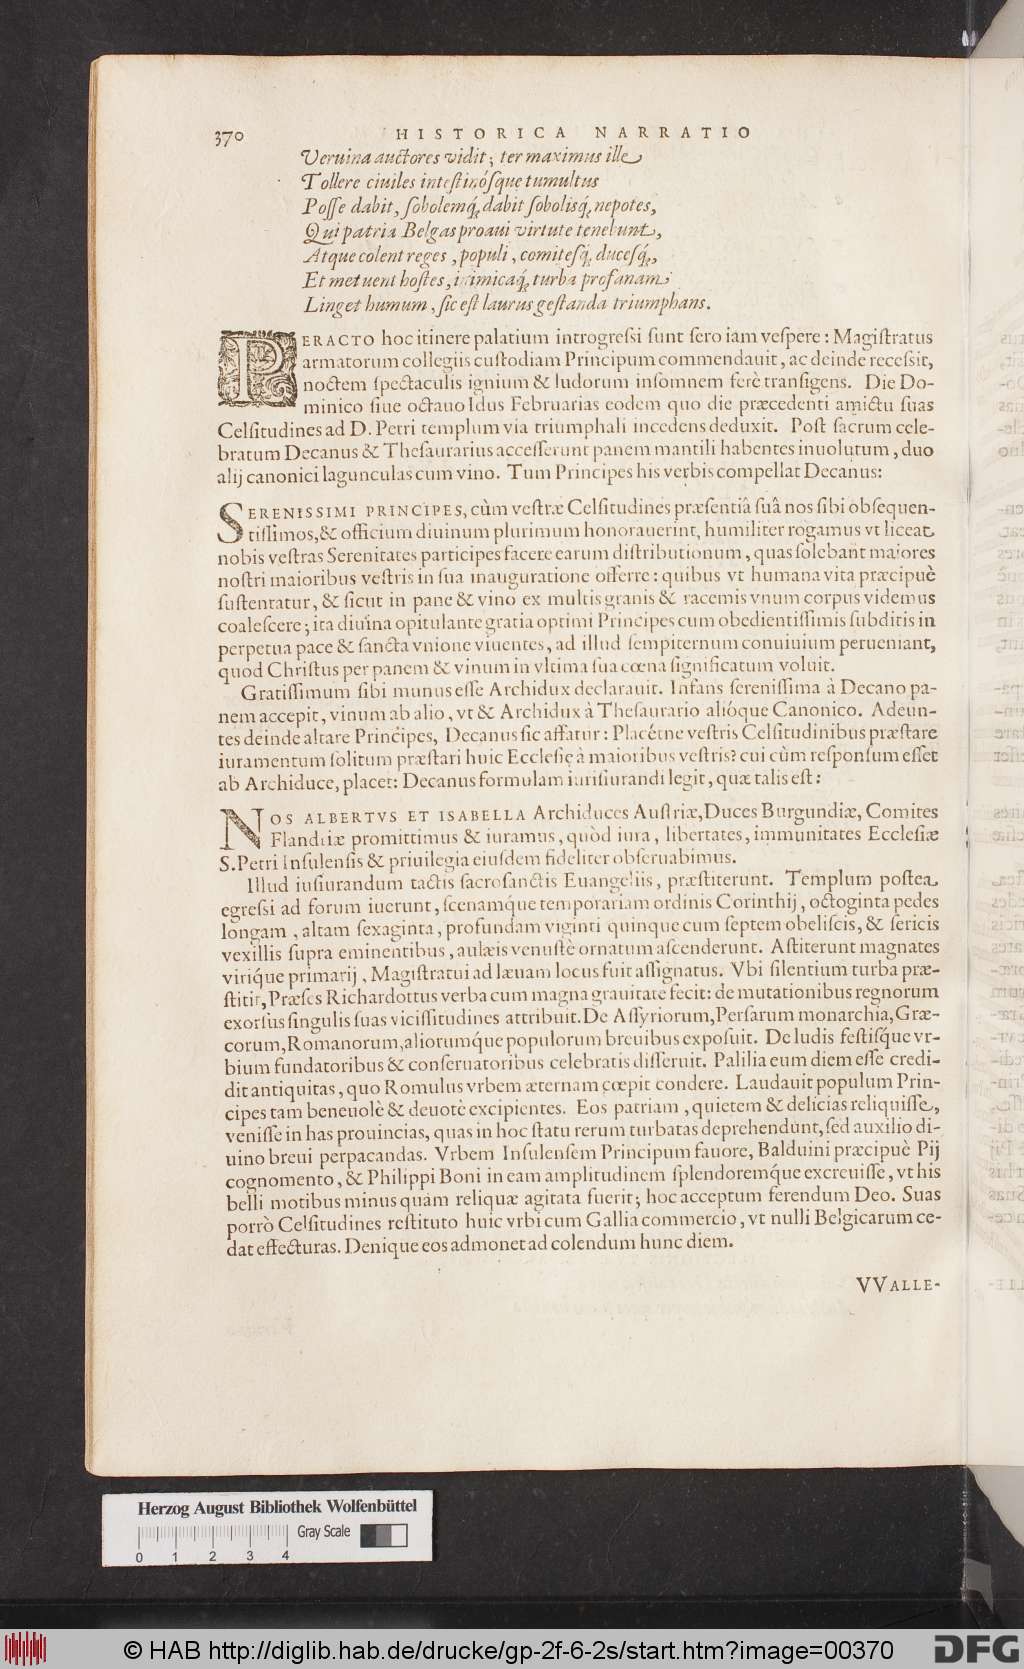 370 HISTORICA NARRATIO
Veruina auctores vidit; ter maximus ille
Tollere ciuiles intestinósque tumultus
Posse dabit, sobolemq́; dabit sobolisq́; nepotes,
Qui patria Belgas proaui virtute tenebunt,
Atque colent reges, populi, comitesq́; ducesq́;,
Et metuent hostes, inimicaq́; turba profanam
Linget humum, sic est laurus gestanda triumphans.
PERACTO hoc itinere palatium introgressi sunt sero iam vespere: Magistratus
armatorum collegiis custodiam Principum commendauit, ac deinde recessit,
noctem spectaculis ignium & ludorum insomnem ferè transigens. Die Do-
minico siue octauo Idus Februarias eodem quo die præcedenti amictu suas
Celsitudines ad D. Petri templum via triumphali incedens deduxit. Post sacrum cele-
bratum Decanus & Thesaurarius accesserunt panem mantili habentes inuolutum, duo
alij canonici lagunculas cum vino. Tum Principes his verbis compellat Decanus:
SERENISSIMI PRINCIPES, cùm vestræ Celsitudines præsentiâ suâ nos sibi obsequen-
tissimos, & officium diuinum plurimum honorauerint, humiliter rogamus vt liceat
nobis vestras Serenitates participes facere earum distributionum, quas solebant maiores
nostri maioribus vestris in sua inauguratione offerre: quibus vt humana vita præcipuè
sustentatur, & sicut in pane & vino ex multis granis & racemis vnum corpus videmus
coalescere; ita diuina opitulante gratia optimi Principes cum obedientissimis subditis in
perpetua pace & sancta vnione viuentes, ad illud sempiternum conuiuium perueniant,
quod Christus per panem & vinum in vltima sua cœna significatum voluit.
Gratissimum sibi munus esse Archidux declarauit. Infans serenissima à Decano pa-
nem accepit, vinum ab alio, vt & Archidux à Thesaurario alióque Canonico. Adeun-
tes deinde altare Principes, Decanus sic affatur: Placétne vestris Celsitudinibus præstare
iuramentum solitum præstari huic Ecclesię à maioribus vestris? cui cùm responsum esset
ab Archiduce, placet: Decanus formulam iurisiurandi legit, quæ talis est:
NOS ALBERTVS ET ISABELLA Archiduces Austriæ, Duces Burgundiæ, Comites
Flandriæ promittimus & iuramus, quòd iura, libertates, immunitates Ecclesiæ
S. Petri Insulensis & priuilegia eiusdem fideliter obseruabimus.
Illud iusiurandum tactis sacrosanctis Euangeliis, præstiterunt. Templum postea
egressi ad forum iuerunt, scenamque temporariam ordinis Corinthij, octoginta pedes
longam, altam sexaginta, profundam viginti quinque cum septem obeliscis, & sericis
vexillis supra eminentibus, aulæis venustè ornatum ascenderunt. Astiterunt magnates
viríque primarij, Magistratui ad læuam locus fuit assignatus. Vbi silentium turba præ-
stitit, Præses Richardottus verba cum magna grauitate fecit: de mutationibus regnorum
exorsus singulis suas vicissitudines attribuit. De Assyriorum, Persarum monarchia, Græ-
corum, Romanorum, aliorumque populorum breuibus exposuit. De ludis festisque vr-
bium fundatoribus & conseruatoribus celebratis disseruit. Palilia eum diem esse credi-
dit antiquitas, quo Romulus vrbem æternam cœpit condere. Laudauit populum Prin-
cipes tam beneuolè & deuotè excipientes. Eos patriam, quietem & delicias reliquisse,
venisse in has prouincias, quas in hoc statu rerum turbatas deprehendunt, sed auxilio di-
uino breui perpacandas. Vrbem Insulensem Principum fauore, Balduini præcipuè Pij
cognomento, & Philippi Boni in eam amplitudinem splendoremque excreuisse, vt his
belli motibus minus quàm reliquæ agitata fuerit; hoc acceptum ferendum Deo. Suas
porrò Celsitudines restituto huic vrbi cum Gallia commercio, vt nulli Belgicarum ce-
dat effecturas. Denique eos admonet ad colendum hunc diem.
VVALLE-
Herzog August Bibliothek Wolfenbüttel
Gray Scale
0 1 2 3 4
© HAB http://diglib.hab.de/drucke/gp-2f-6-2s/start.htm?image=00370
DFG